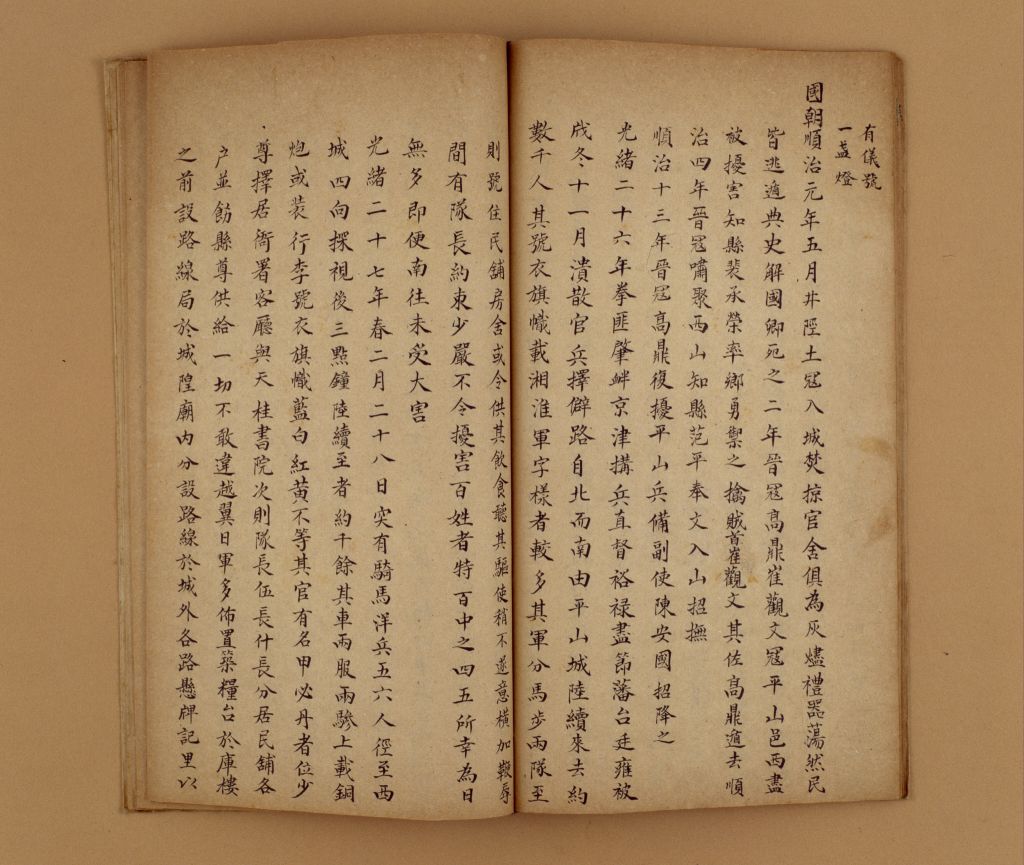 有儀號
一盞燈
國朝順治元年五月井陘土冦入城焚掠官舍俱為灰燼禮器蕩然民
皆逃遁典史解國卿死之二年晉冦高鼎崔觀文冦平山邑西盡
被擾害知縣裴承榮率鄉勇禦之擒賊首崔觀文其佐高鼎遁去順
治四年晉冦嘯聚西山知縣范平奉文入山招撫
順治十三年晉冦高鼎復擾平山兵備副使陳安國招降之
光緒二十六年拳匪肇衅京津搆兵直督裕祿盡節藩台廷雍被
戕冬十一月潰散官兵擇僻路自北而南由平山城陸續來去約
數千人其號衣旗幟載湘淮軍字樣者較多其軍分馬步兩隊至
則號住民舖房舍或令供其飲食聽其驅使稍不遂意橫加鞭辱
間有隊長約束少嚴不令擾害百姓者特百中之四五所幸為日
無多即便南往未受大害
光緒二十七年春二月二十八日突有騎馬洋兵五六人徑至西
城四向探視後三點鐘陸續至者約千餘其車兩服兩驂上載銅
炮或裝行李號衣旗幟藍白紅黄不等其官有名甲必丹者位少
尊擇居衙署客廳與天桂書院次則隊長伍長什長分居民舖各
户並飭縣尊供給一切不敢違越翼日軍多佈置築糧台於庫樓
之前設路線局於城隍廟內分設路線於城外各路懸牌記里以